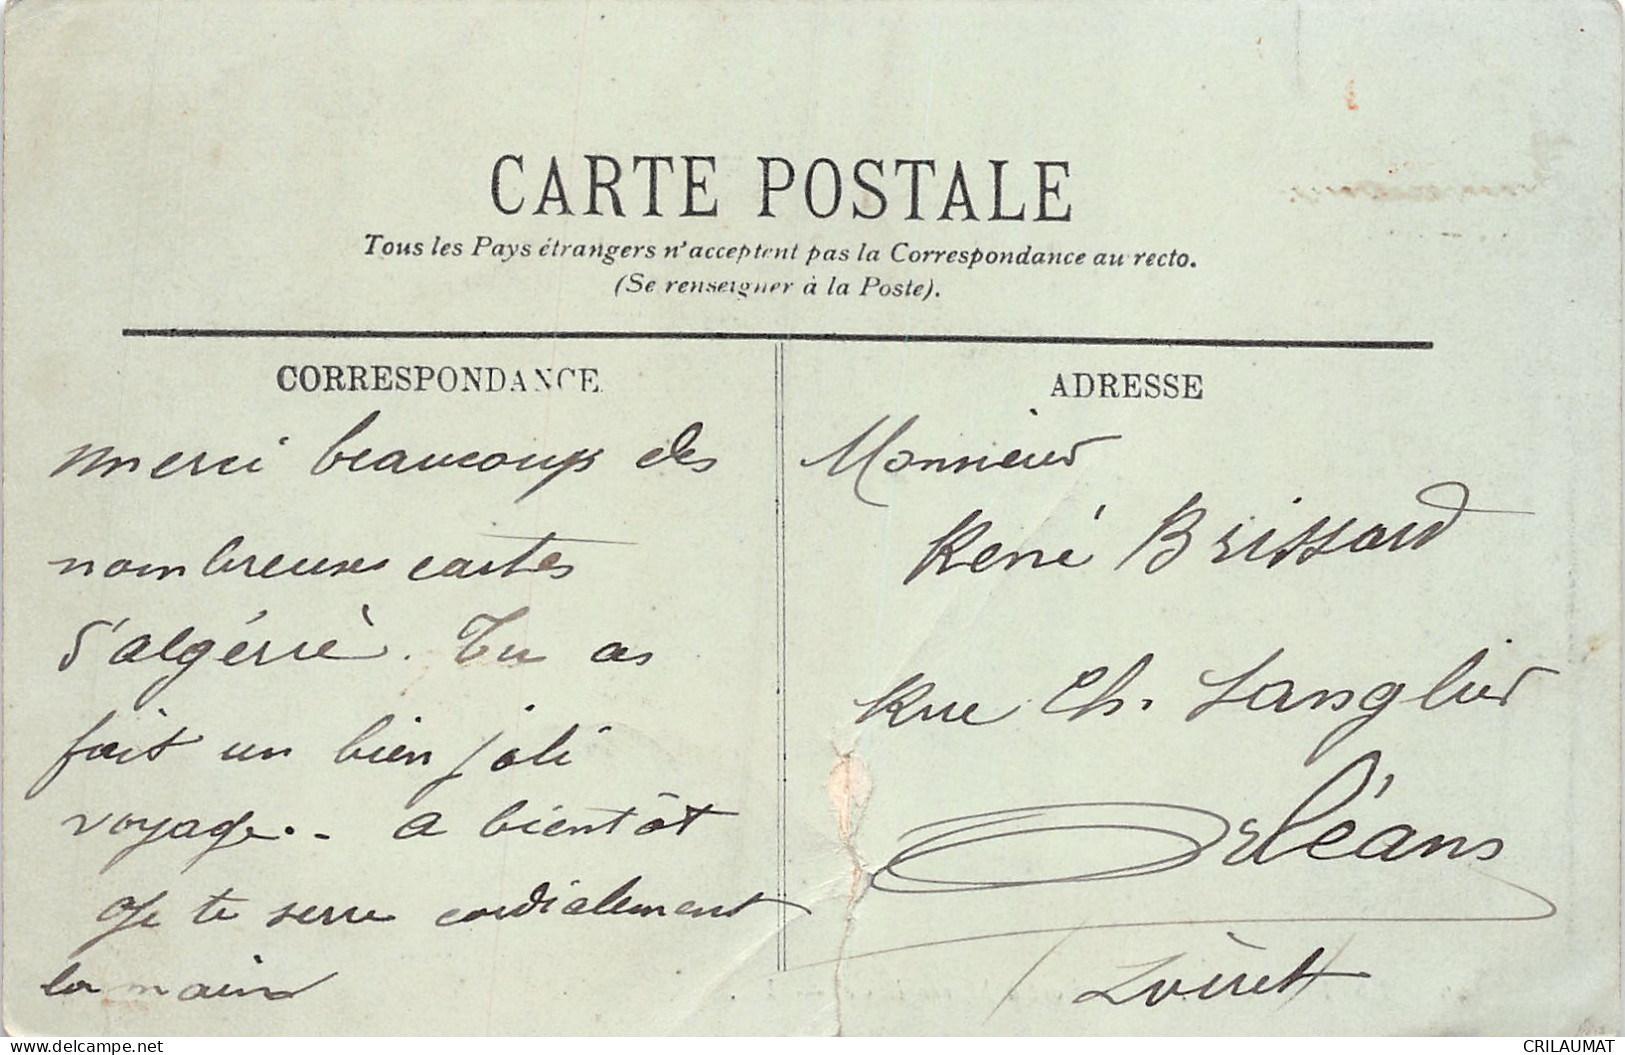 CARTE POSTALE
Tous les Pays étrangers n'acceptent pas la Correspondance au recto.
(Se renseigner à la Poste).
CORRESPONDANCE
merci beaucoup des
nombreuses cartes
d'algérie. Tu as
fait un bien joli
voyage. - a bientôt
Je te serre cordialement
la main
ADRESSE
Monsieur
René Brissard
Rue Ch. Sanglier
Orléans
Loiret
CRILAUMAT
delcampe.net